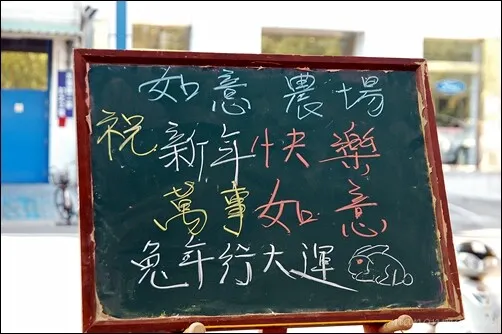 如意農場
祝新年快樂
萬事如意
兔年行大運